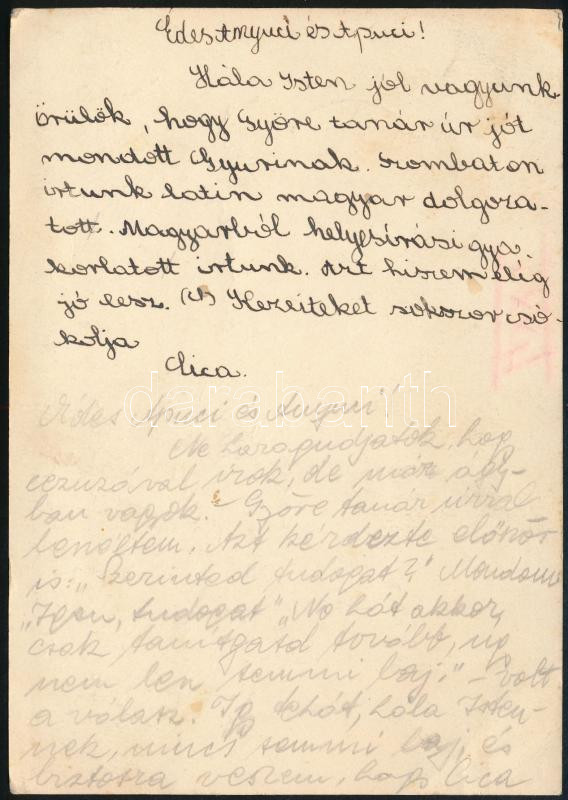 Édes Anyuci és Apuci!
Hála Isten jól vagyunk
örülök, hogy Györe tanár úr jót
mondott Gyurinak. Szombaton
irtunk latin magyar dolgoza-
tott. Magyarból helyesírási gya
korlatott irtunk. Azt hiszem elég
jó lesz. (!) Kezeiteket sokszor csó-
kolja
Cica.
darabanth
Édes Apuci és Anyuci!
Ne haragudjatok, hogy
cezuzával irok, de már ágy-
ban vagyok. Györe tanár úrral
beszéltem. Azt kérdezte először
is: "Szerinted tudogat?" Mondom
"Igen, tudogat" "No hát akkor,
csak tanitgasd tovább, ug
nem lesz semmi baj." - volt
a válasz. Ig tehát, hála Isten-
nek, nincs semmi baj, és
biztosra veszem, hogy Cica